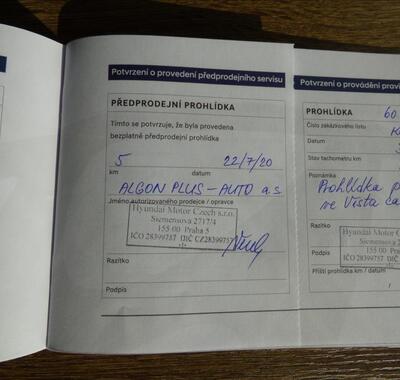 Potvrzení o provedení předprodejního servisu
PŘEDPRODEJNÍ PROHLÍDKA
Tímto se potvrzuje, že byla provedena
bezplatně předprodejní prohlídka
5 22/7/20
km datum
ALGON PLUS - AUTO a.s
Jméno autorizovaného prodejce / opravce
Hyundai Motor Czech s.r.o.
Siemensova 2717/4
155 00 Praha 5
IČO 28399757 DIČ CZ28399757
Razítko
Podpis
Potvrzení o provádění
PROHLÍDKA 60
Číslo zakázkového listu
Datum
Stav tachometru km
Poznámka
Prohlídka
ve
Hyundai Motor Cz
Siemensova 2
155 00 Pra
IČO 28399757 DIČ
Razítko
Příští prohlídka km / datum
Podpis